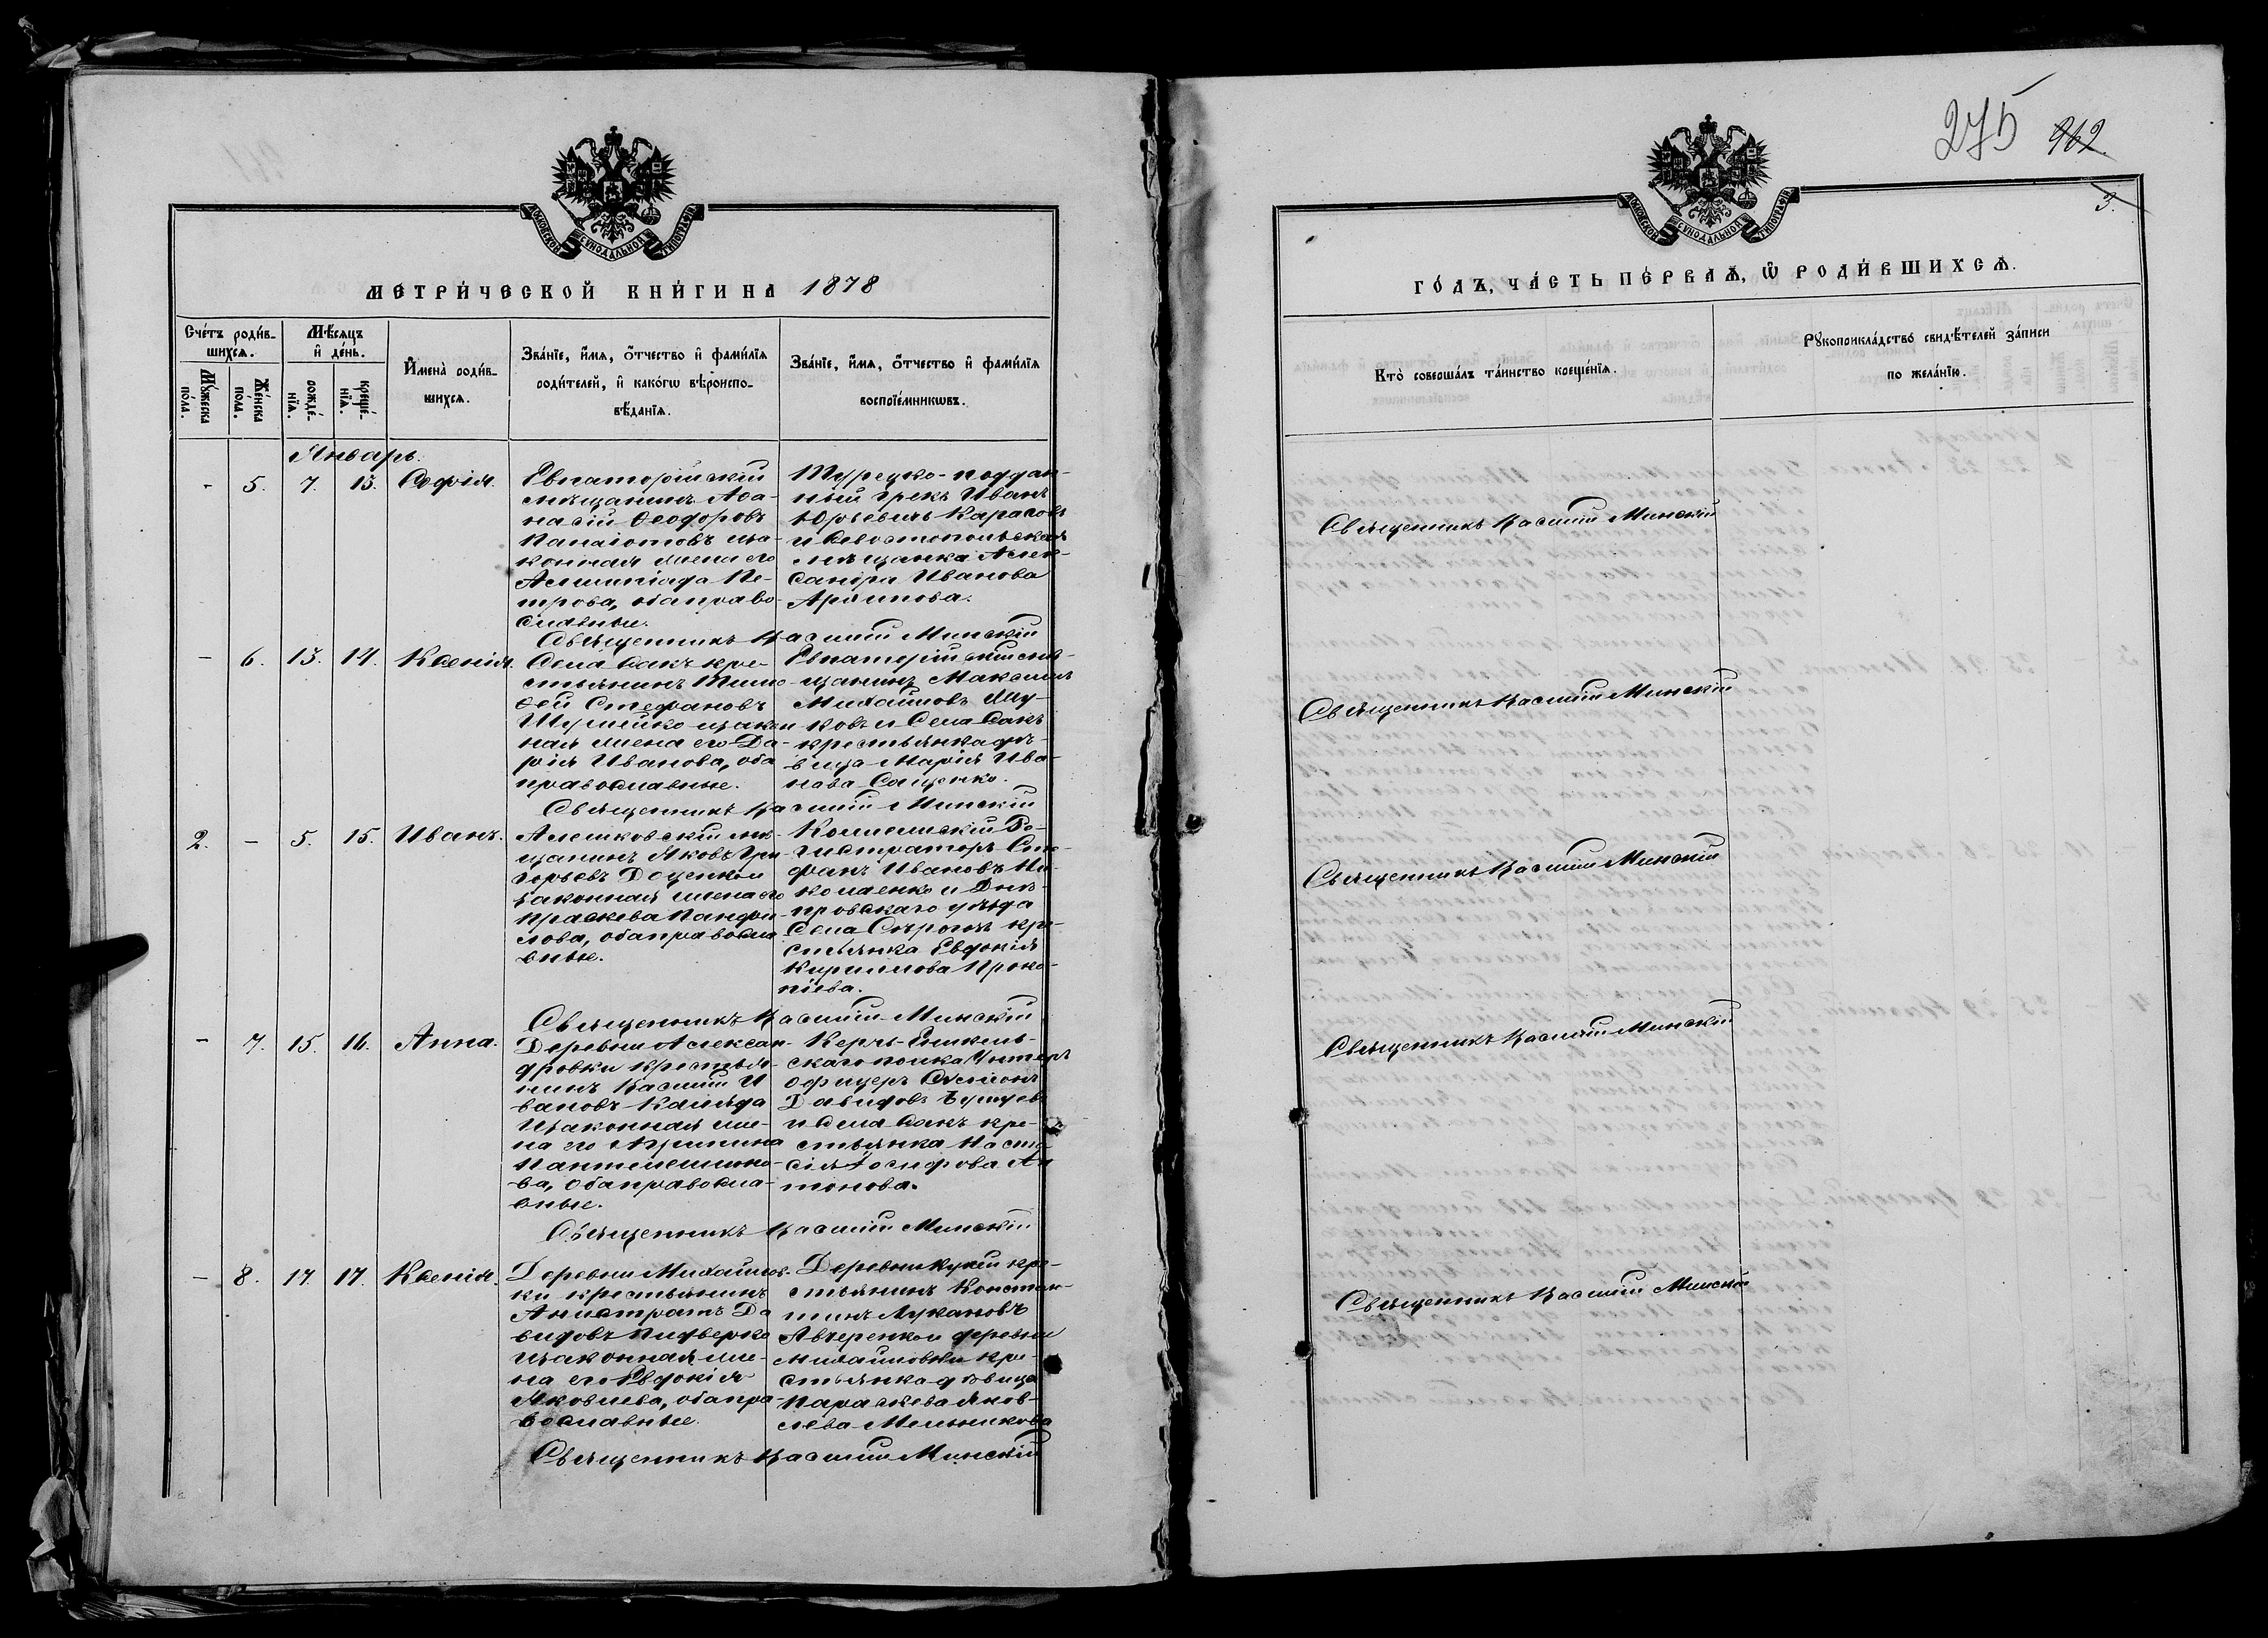 МОСКОВСКОЙ СѴНОДАЛЬНОЙ ТИПОГРАФІИ
МЕТРИ́ЧЕСКОЙ КНИ́ГИ НА 1878
Сче́тъ роди́в-
шихсѧ.
Мѣ́сѧцъ
и҆ де́нь.
Мꙋ́жеска
по́ла.
Же́нска
по́ла.
рожде́-
нїѧ.
креще́-
нїѧ.
И҆мена̀ роди́в-
шихсѧ.
Зва́нїе, и҆́мѧ, ѻ҆́тчество и҆ фами́лїѧ
роди́телей, и҆ како́гѡ вѣ́роиспо-
вѣ́данїѧ.
Зва́нїе, и҆́мѧ, ѻ҆́тчество и҆ фами́лїѧ
воспрїе́мникѡвъ.
Январь.
- 5. 7. 13. Софія.
Евпаторійскій
мѣщанинъ Аѳа-
насій Ѳеодоровъ
Панаіотовъ иза-
конная жена его
Асминіада Пе-
трова, оба право-
славные.
Турецко-поддан-
ный грекъ Иванъ
Юрьевичъ Карасовъ
и Севостопольская
мѣщанка Алек-
сандра Иванова
Священникъ Василій Минскій
- 6. 13. 14. Ксенія.
Села Сакъ кре-
стьянинъ Тимо-
ѳей Стефановъ
Шумейко изакон
ная жена его Да-
рія Иванова, оба
православные.
Евпаторійскій мѣ-
щанинъ Максимъ
Михайловъ Жу-
ковъ и Села Сакъ
крестьянка дѣ-
вица Марія Ива-
нова Саценко.
Священникъ Василій Минскій
2. - 5. 15. Иванъ.
Алешковскій мѣ-
щанинъ Яковъ Гри
горьевъ Доценко и
законная жена его
Праскева Панфи-
лова, оба правосла
вные.
Коллежскій Ре-
гистраторъ Сте-
фанъ Ивановъ Ни-
колаенко и Днѣ-
провскаго уѣзда
Села Сѣрогозъ кре-
стьянка Евдокія
Кириллова Проко-
піева.
Священникъ Василій Минскій
- 7. 15. 16. Анна.
Деревни Алексан-
дровки крестья-
нинъ Василій И
вановъ Калида
Изаконная же-
на его Агрипина
Пантелеймоно-
ва, оба правосла-
вные.
Керчь-Еникель-
скаго полка Унтеръ
офицеръ Симеонъ
Давидовъ
и Села Сакъ кре-
стьянка Наста-
сія Іосифова Ан
тонова.
Священникъ Василій Минскій
- 8. 17. 17. Ксенія.
Деревни Михайлов-
ки крестьянинъ
Анистратъ Да
видовъ Пидверко
Изаконная же-
на его Евдокія
Яковлева, оба пра-
вославные.
Деревни Кулей кре-
стьянинъ Констан-
тинъ Лукановъ
Авчеренко и деревни
Михайловки кре-
стьянка дѣвица
Параскева Яков-
лева Мельникова
Священникъ Василій Минскій
275 262.
3.
МОСКОВСКОЙ СѴНОДАЛЬНОЙ ТИПОГРАФІИ
ГО́ДЪ, ЧА́СТЬ ПЕ́РВАѦ, Ѽ РОДИ́ВШИХСѦ.
Кто̀ соверша́лъ та́инство креще́нїѧ.
Рꙋкоприкла́дство свидѣ́телей за́писи
по жела́нїю.
Священникъ Василій Минскій
Священникъ Василій Минскій
Священникъ Василій Минскій
Священникъ Василій Минскій
Священникъ Василій Минскій